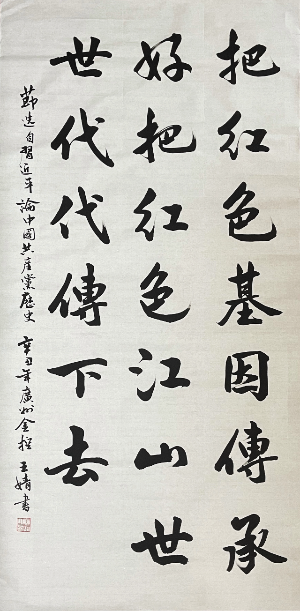 把红色基因傳承
好把红色江山世
世代代傳下去
節选自習近平論中國共産黨歷史 辛丑年廣州金控 王婧書